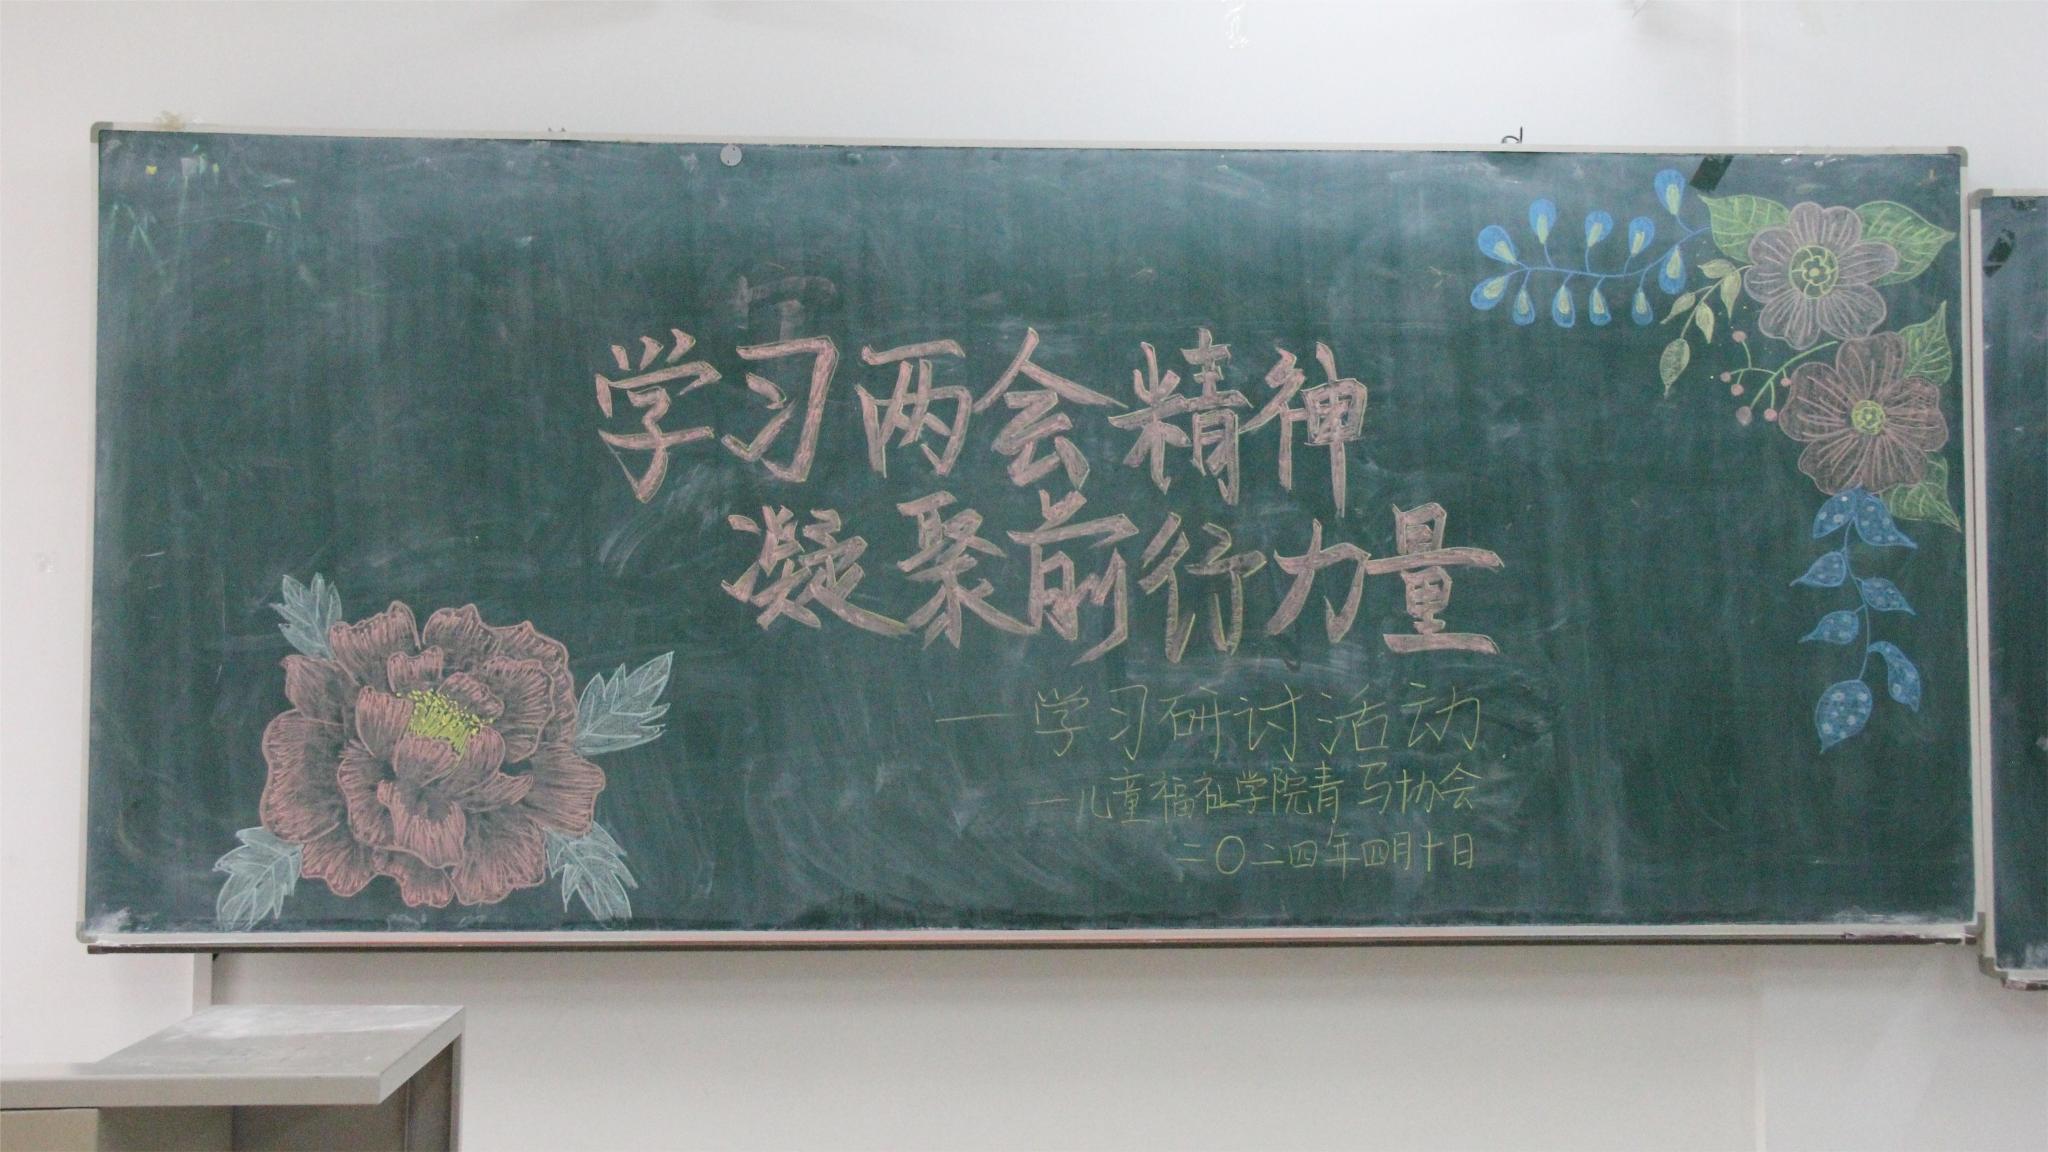 学习两会精神
凝聚前行力量
—学习研讨活动
—儿童福祉学院青马协会
二〇二四年四月十日